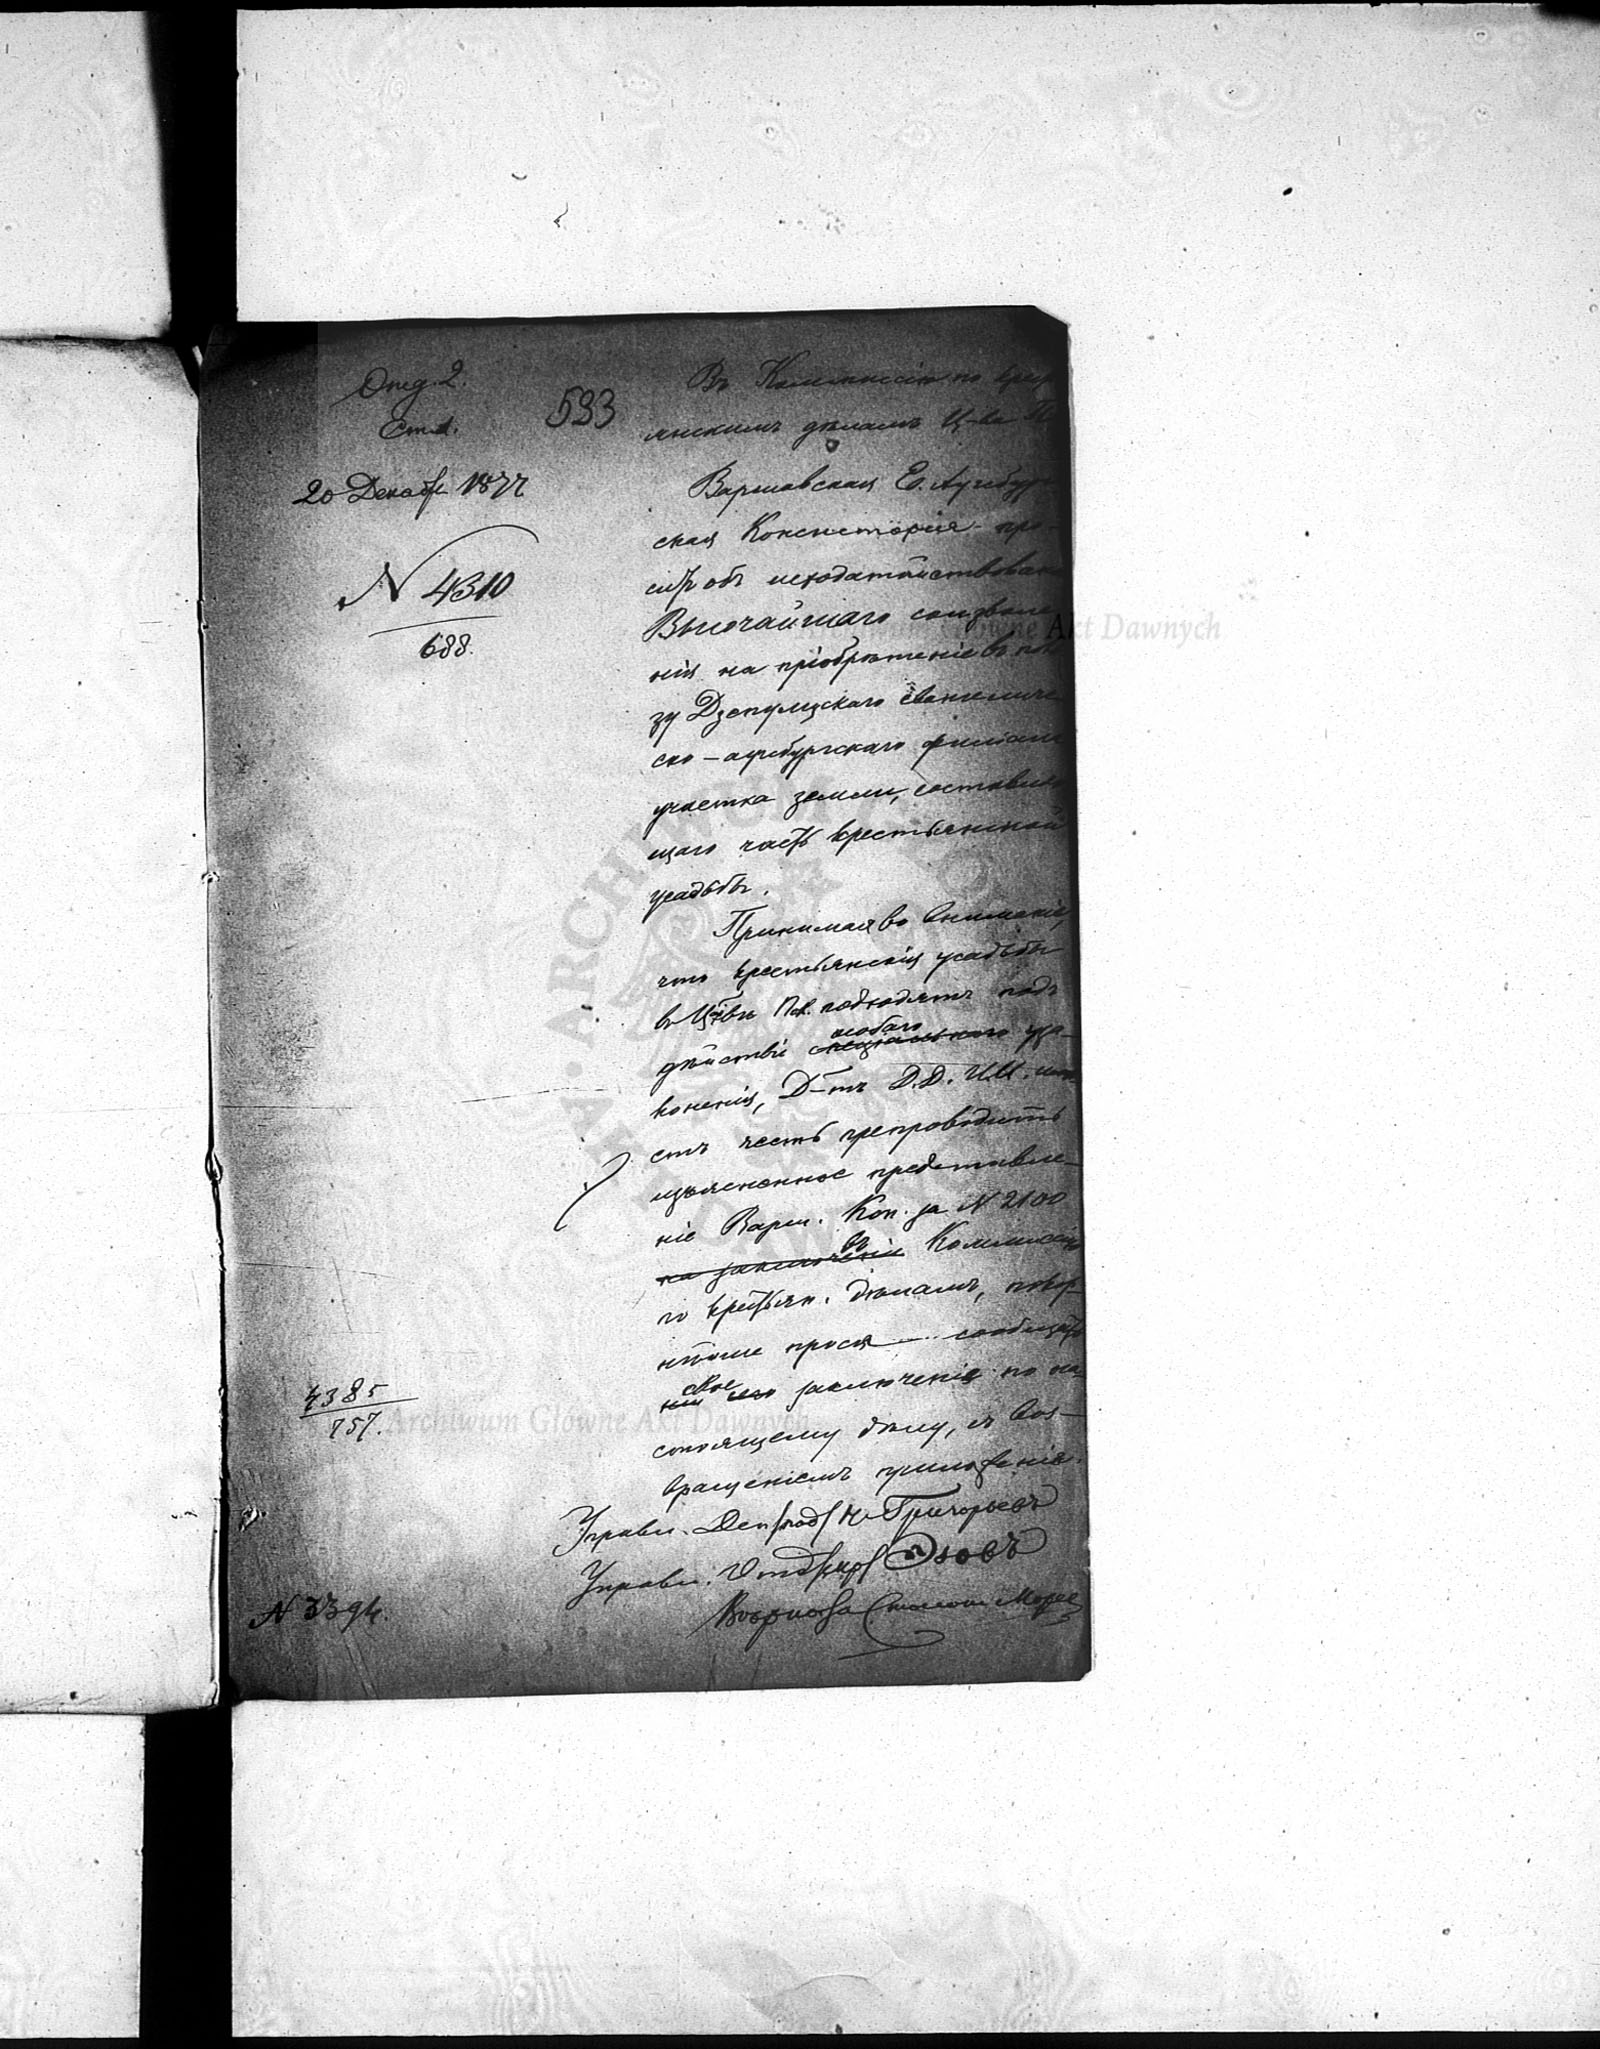 Отд. 2.
Ст. 1.
593
20 Декабр 1877
N 4310
688.
Въ Коммиссію по крест
янскимъ дѣламъ Ц-ва П
Варшавская Е. Аугсбург
ская Консисторія про-
ситъ объ исходатайствованіи
Высочайшаго соизволе
нія на пріобрѣтеніе въ поль
зу Дзепулцскаго евангеличе
ско-аугсбургскаго филіала
участка земли, составляю
щаго часть крестьянской
усадьбы.
Принимая во вниманіе,
что крестьянскія усадьбы
въ Цствѣ Пол. подходятъ подъ
особаго
дѣйствіе спеціальнаго уза-
коненія, Д-тъ Д.Д. И.И. имѣ
етъ честь препроводить
изъясненное представле-
ніе Варш. Кон. за N 2100
въ
на заключеніе Коммиссію
по крестьян. дѣламъ, покор-
нѣйше прося сообщить
свое
заключеніе по на
стоящему дѣлу, съ воз-
вращеніемъ приложенія.
4385
757.
Управл. Деп /под/ Н. Григорьевъ
Управл. Отд /кр/ Эзовъ
N 3394.
Archiwum Główne Akt Dawnych
Archiwum Główne Akt Dawnych